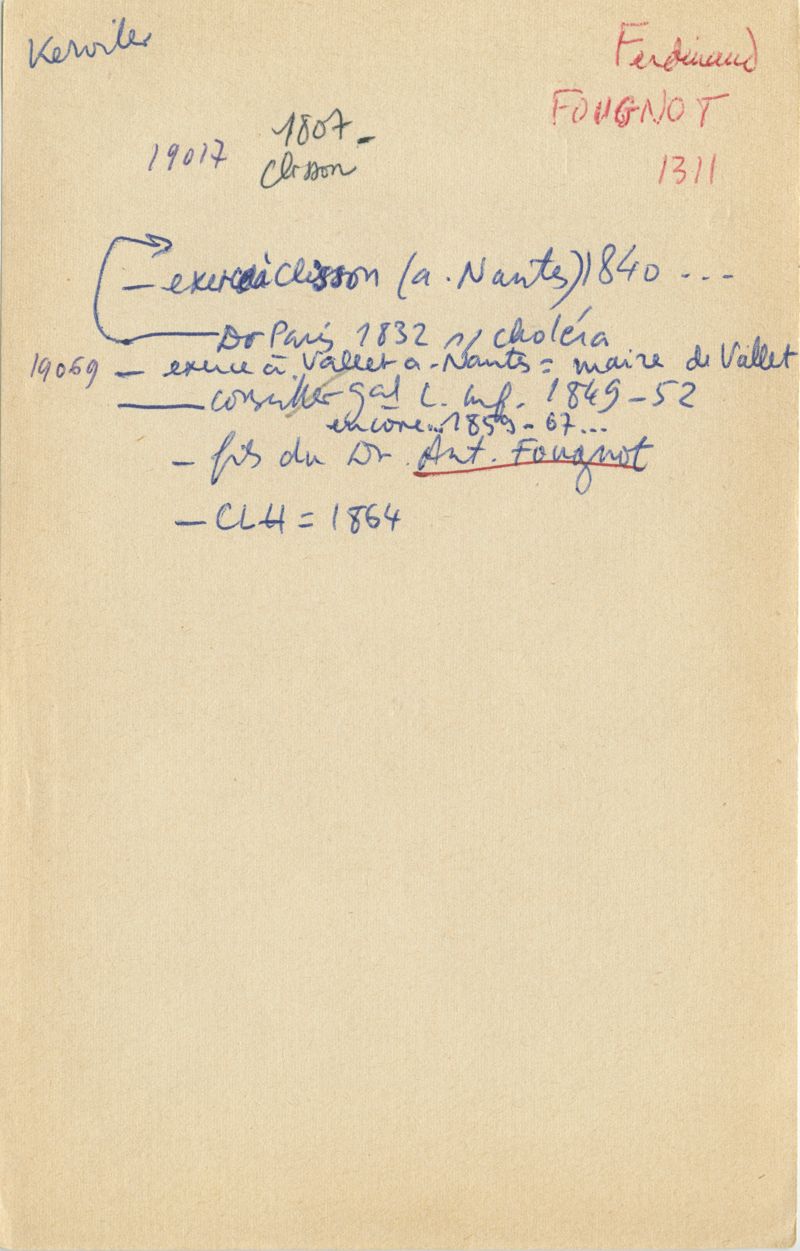 Kerviler
Ferdinand
FOUGNOT
1311
19017
1807-
Clisson
- exerce à Clisson (a. Nantes) 1840 ...
Dr Paris 1832 s/ choléra
19069 - exerce à Vallet a. Nantes = maire de Vallet
- conseiller gal L. Inf. 1849-52
encore... 1859-67...
- fils du Dr Ant. Fougnot
- CLH = 1864